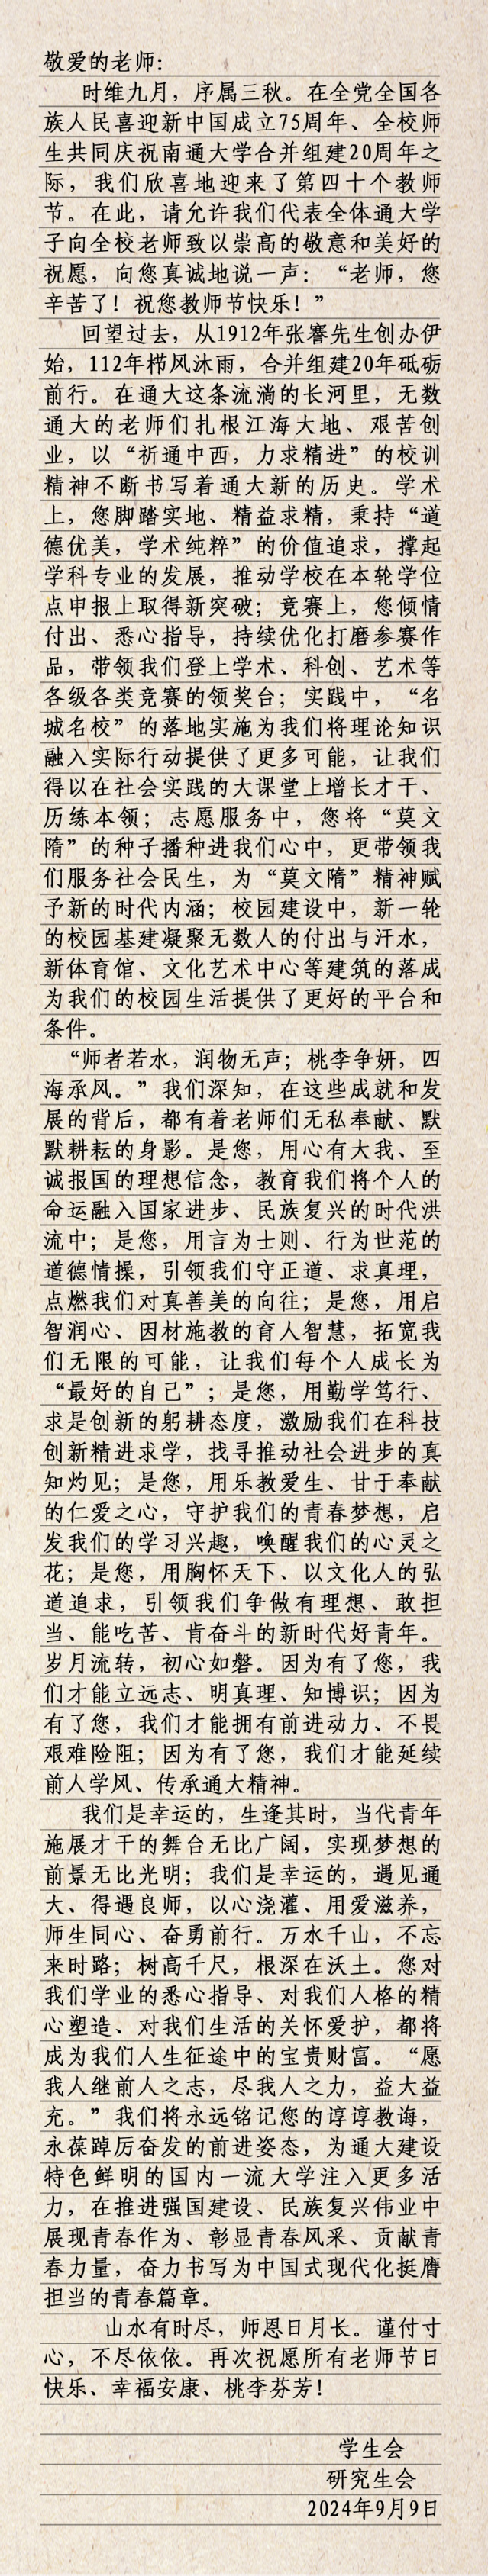 敬爱的老师：
时维九月，序属三秋。在全党全国各
族人民喜迎新中国成立75周年、全校师
生共同庆祝南通大学合并组建20周年之
际，我们欣喜地迎来了第四十个教师
节。在此，请允许我们代表全体通大学
子向全校老师致以崇高的敬意和美好的
祝愿，向您真诚地说一声：“老师，您
辛苦了！祝您教师节快乐！”
回望过去，从1912年张謇先生创办伊
始，112年栉风沐雨，合并组建20年砥砺
前行。在通大这条流淌的长河里，无数
通大的老师们扎根江海大地、艰苦创
业，以“祈通中西，力求精进”的校训
精神不断书写着通大新的历史。学术
上，您脚踏实地、精益求精，秉持“道
德优美，学术纯粹”的价值追求，撑起
学科专业的发展，推动学校在本轮学位
点申报上取得新突破；竞赛上，您倾情
付出、悉心指导，持续优化打磨参赛作
品，带领我们登上学术、科创、艺术等
各级各类竞赛的领奖台；实践中，“名
城名校”的落地实施为我们将理论知识
融入实际行动提供了更多可能，让我们
得以在社会实践的大课堂上增长才干、
历练本领；志愿服务中，您将“莫文
隋”的种子播种进我们心中，更带领我
们服务社会民生，为“莫文隋”精神赋
予新的时代内涵；校园建设中，新一轮
的校园基建凝聚无数人的付出与汗水，
新体育馆、文化艺术中心等建筑的落成
为我们的校园生活提供了更好的平台和
条件。
“师者若水，润物无声；桃李争妍，四
海承风。”我们深知，在这些成就和发
展的背后，都有着老师们无私奉献、默
默耕耘的身影。是您，用心有大我、至
诚报国的理想信念，教育我们将个人的
命运融入国家进步、民族复兴的时代洪
流中；是您，用言为士则、行为世范的
道德情操，引领我们守正道、求真理，
点燃我们对真善美的向往；是您，用启
智润心、因材施教的育人智慧，拓宽我
们无限的可能，让我们每个人成长为
“最好的自己”；是您，用勤学笃行、
求是创新的躬耕态度，激励我们在科技
创新精进求学，找寻推动社会进步的真
知灼见；是您，用乐教爱生、甘于奉献
的仁爱之心，守护我们的青春梦想，启
发我们的学习兴趣，唤醒我们的心灵之
花；是您，用胸怀天下、以文化人的弘
道追求，引领我们争做有理想、敢担
当、能吃苦、肯奋斗的新时代好青年。
岁月流转，初心如磐。因为有了您，我
们才能立远志、明真理、知博识；因为
有了您，我们才能拥有前进动力、不畏
艰难险阻；因为有了您，我们才能延续
前人学风、传承通大精神。
我们是幸运的，生逢其时，当代青年
施展才干的舞台无比广阔，实现梦想的
前景无比光明；我们是幸运的，遇见通
大、得遇良师，以心浇灌、用爱滋养，
师生同心、奋勇前行。万水千山，不忘
来时路；树高千尺，根深在沃土。您对
我们学业的悉心指导、对我们人格的精
心塑造、对我们生活的关怀爱护，都将
成为我们人生征途中的宝贵财富。“愿
我人继前人之志，尽我人之力，益大益
充。”我们将永远铭记您的谆谆教诲，
永葆踔厉奋发的前进姿态，为通大建设
特色鲜明的国内一流大学注入更多活
力，在推进强国建设、民族复兴伟业中
展现青春作为、彰显青春风采、贡献青
春力量，奋力书写为中国式现代化挺膺
担当的青春篇章。
山水有时尽，师恩日月长。谨付寸
心，不尽依依。再次祝愿所有老师节日
快乐、幸福安康、桃李芬芳！
学生会
研究生会
2024年9月9日